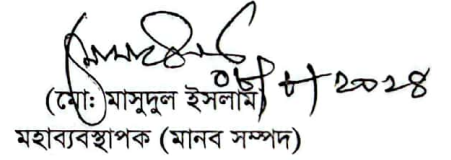 ২০২৪
(মোঃ মাসুদুল ইসলাম)
মহাব্যবস্থাপক (মানব সম্পদ)